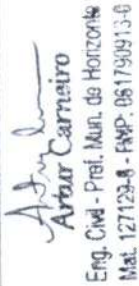 Artur Carneiro
Eng. Civil - Pref. Mun. de Horizonte
Mat. 127122-8 - RNP. 061790913-0